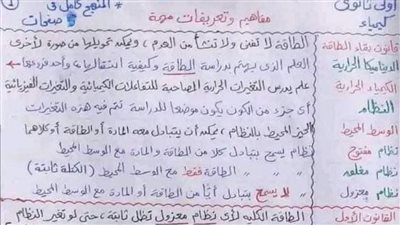 أولى ثانوى
كيمياء
مفاهيم وتعريفات مهمة
المنهج كامل فى
صفحات
قانون بقاء الطاقة الطاقة لا تفنى ولا تنشأ من العدم ، ويمكن تحويلها من صورة لأخرى
الديناميكا الحرارية العلم الذى يهتم بدراسة الطاقة وكيفية انتقالها
الكيمياء الحرارية علم يدرس التغيرات الحرارية المصاحبة للتفاعلات الكيميائية والتغيرات الفيزيائية
النظام أى جزء من الكون يكون موضعا للدراسة تتم فيه هذه التغيرات
الوسط المحيط الحيز المحيط بالنظام ويمكنه أن يتبادل معه المادة أو الطاقة أو كلاهما
نظام مفتوح نظام يسمح بتبادل كلا من الطاقة والمادة مع الوسط المحيط
نظام مغلق " " " الطاقة فقط مع الوسط المحيط (الكتلة ثابتة)
نظام معزول " لا يسمح بتبادل أيا من الطاقة أو المادة مع الوسط المحيط
القانون الأول الطاقة الكلية لأى نظام معزول تظل ثابتة ، حتى لو تغير النظام